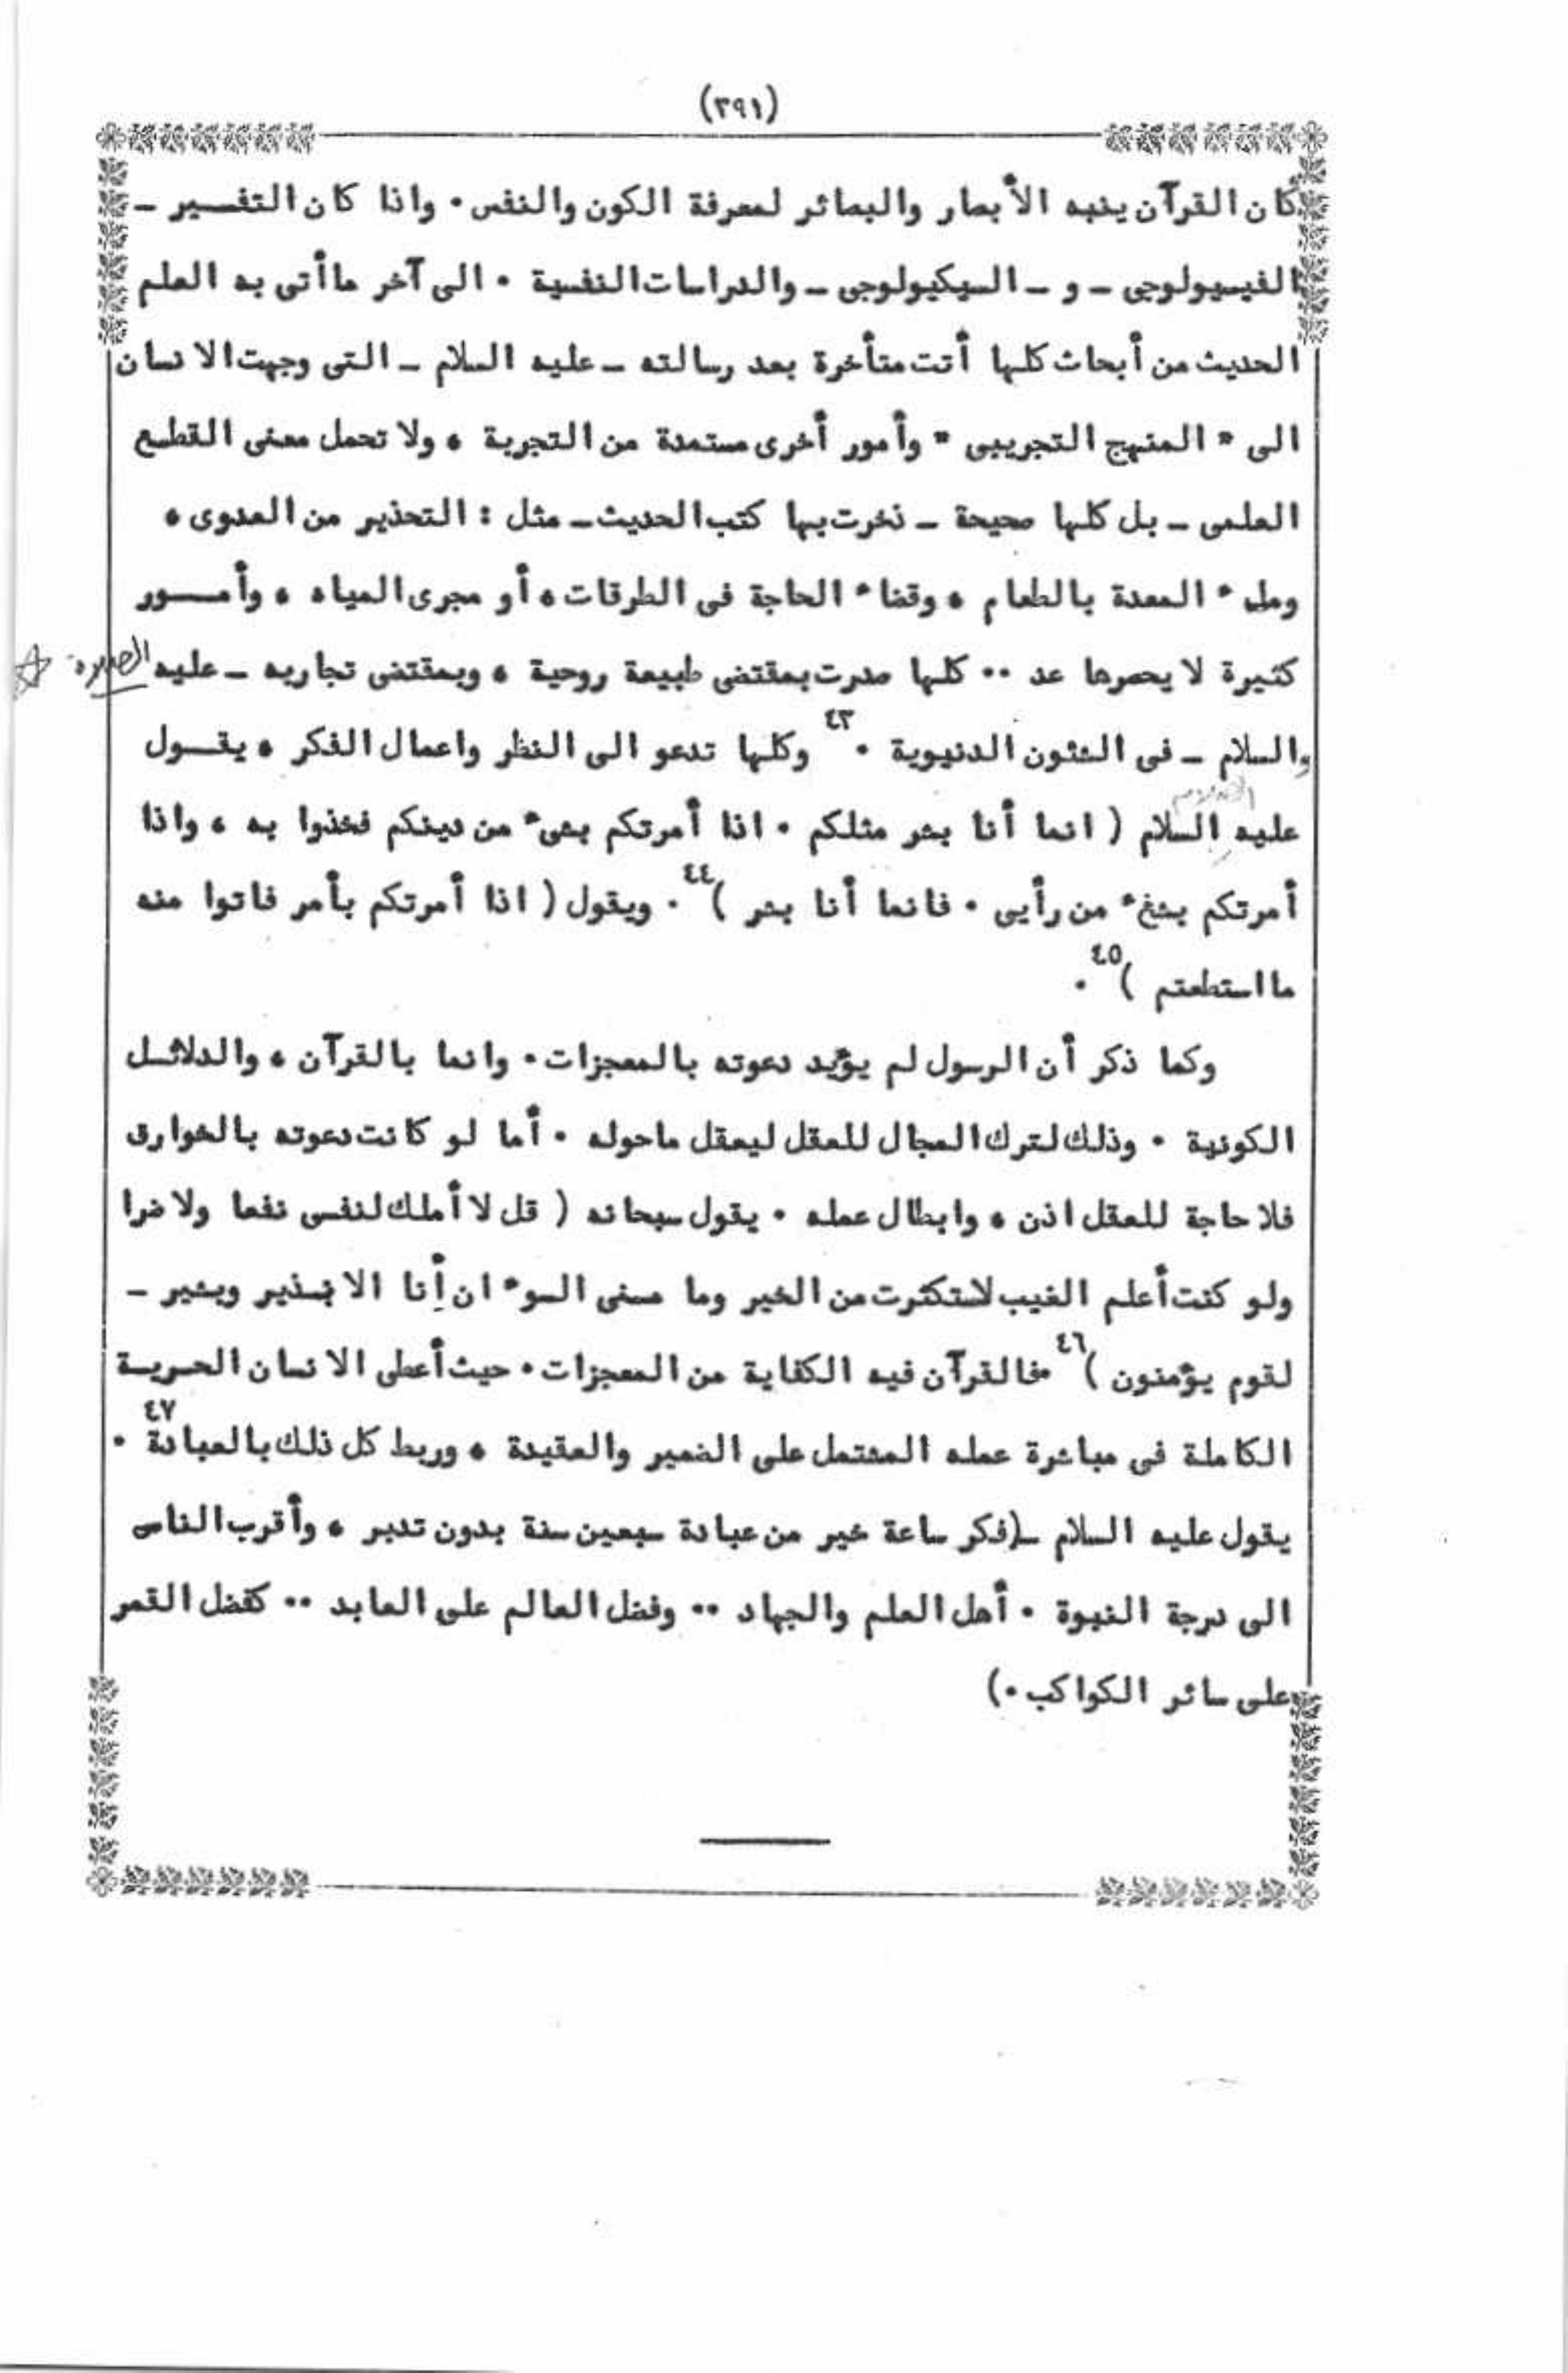 (٣٩١)
كان القرآن ينبه الأبصار والبصائر لمعرفة الكون والنفس٠ واذا كان التفسير ـ
الفيسيولوجى ـ و ـ السيكيولوجى ـ والدراسات النفسية ٠ الى آخر ماأتى به العلم
الحديث من أبحاث كلها أتت متأخرة بعد رسالته ـ عليه السلام ـ التى وجهت الانسان
الى " المنهج التجريبى " وأمور أخرى مستمدة من التجربة ، ولا تحمل معنى القطع
العلمى ـ بل كلها صحيحة ـ نخرت بها كتب الحديث ـ مثل : التحذير من العدوى ،
وملء المعدة بالطعام ، وقضاء الحاجة فى الطرقات ، أو مجرى المياه ، وأمــور
كثيرة لا يحصرها عد ٠٠ كلها صدرت بمقتضى طبيعة روحية ، وبمقتضى تجاربه ـ عليه
والسلام ـ فى الشئون الدنيوية ٠ ٤٣ وكلها تدعو الى النظر واعمال الفكر ، يقــول
عليه السلام ( انما أنا بشر مثلكم ٠ اذا أمرتكم بشىء من دينكم فخذوا به ، واذا
أمرتكم بشغء من رأيى ٠ فانما أنا بشر )٤٤ ٠ ويقول ( اذا أمرتكم بأمر فاتوا منه
ما استطعتم )٤٥ ٠
وكما ذكر أن الرسول لم يؤيد دعوته بالمعجزات٠ وانما بالقرآن ، والدلائــل
الكونية ٠ وذلك لترك المجال للعقل ليعقل ماحوله ٠ أما لو كانت دعوته بالخوارق
فلا حاجة للعقل اذن ، وابطال عمله ٠ يقول سبحانه ( قل لا أملك لنفسى نفعا ولا ضرا
ولو كنت أعلم الغيب لاستكثرت من الخير وما مسنى السوء ان أنا الا نذير وبشير ـ
لقوم يؤمنون )٤٦ ٠فالقرآن فيه الكفاية من المعجزات٠ حيث أعطى الانسان الحريــة
الكاملة فى مباشرة عمله المشتمل على الضمير والعقيدة ، وربط كل ذلك بالعبادة٤٧ ٠
يقول عليه السلام ـ(فكر ساعة خير من عبادة سبعين سنة بدون تدبر ، وأقرب الناس
الى درجة النبوة ٠ أهل العلم والجهاد ٠٠ وفضل العالم على العابد ٠٠ كفضل القمر
على سائر الكواكب٠)